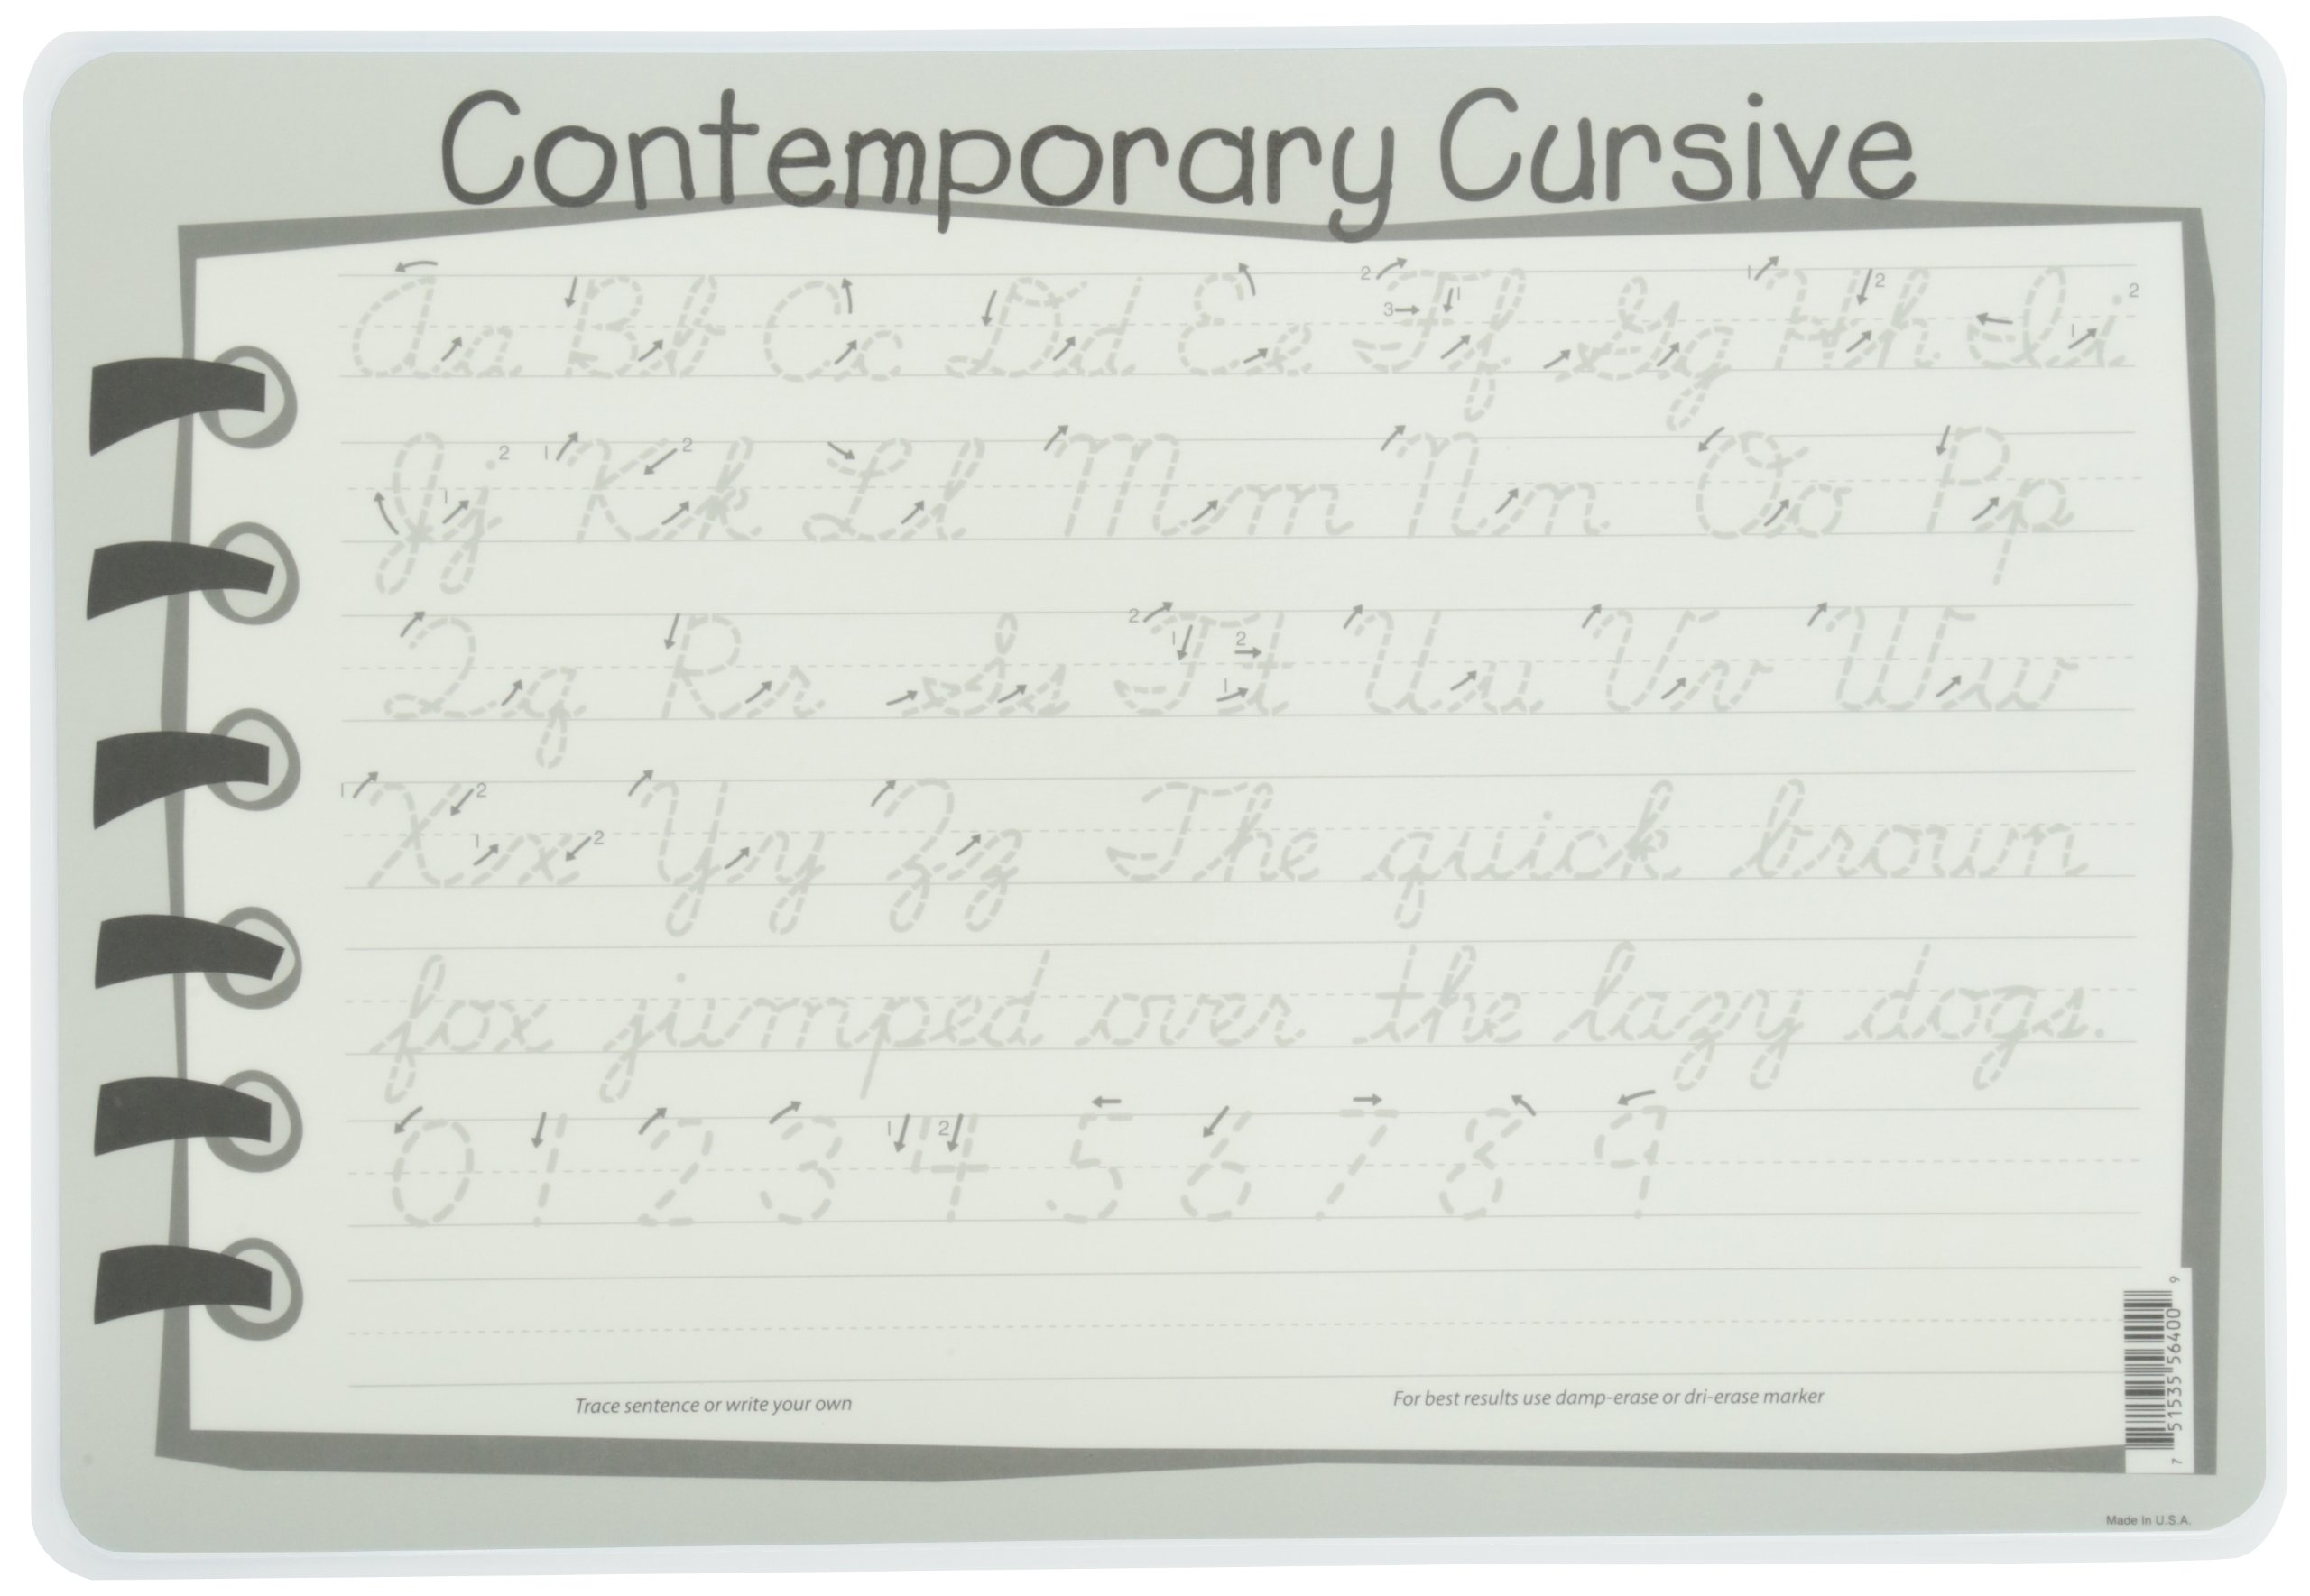 Contemporary Cursive
Aa Bb Cc Dd Ee Ff Gg Hh Ii
Jj Kk Ll Mm Nn Oo Pp
Qq Rr Ss Tt Uu Vv Ww
Xx Yy Zz The quick brown
fox jumped over the lazy dogs.
0 1 2 3 4 5 6 7 8 9
Trace sentence or write your own
For best results use damp-erase or dri-erase marker
7 51535 56400 9
Made In U.S.A.